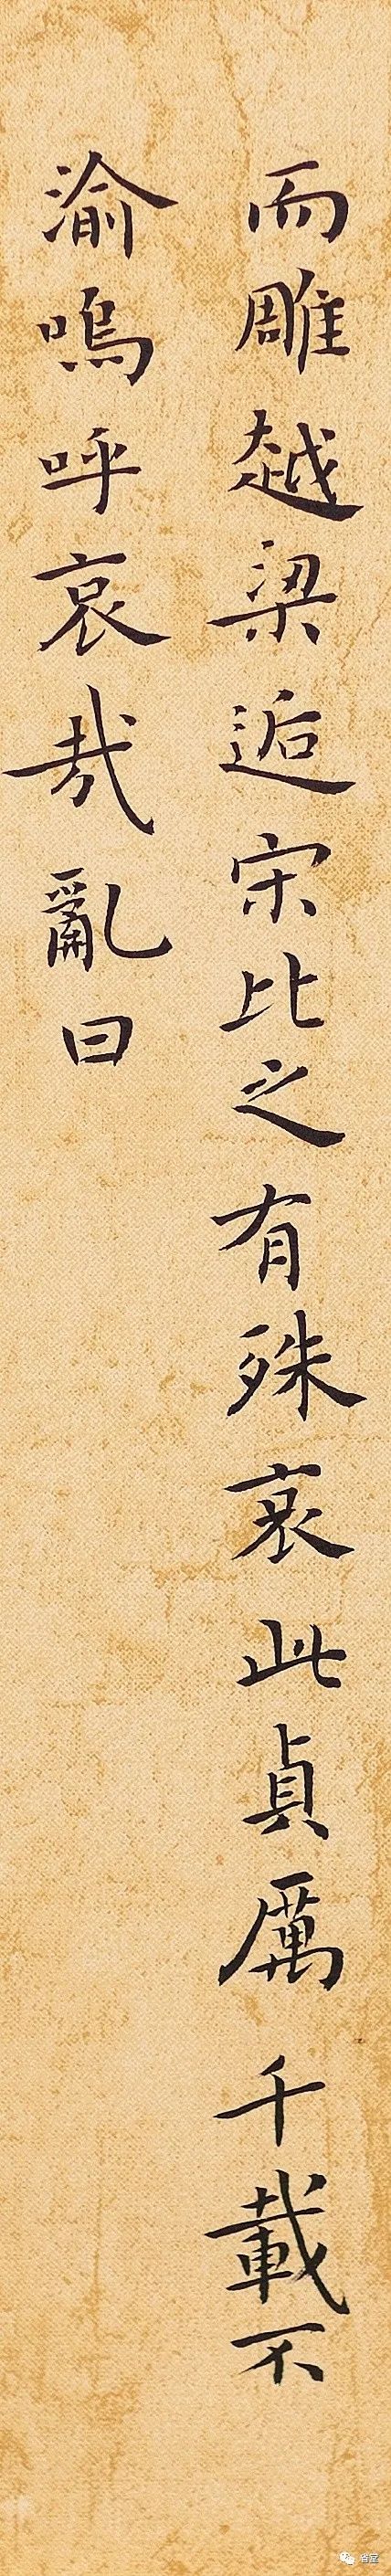 而雕越梁逅宋比之有殊哀此貞厲千載不
渝嗚呼哀哉亂曰